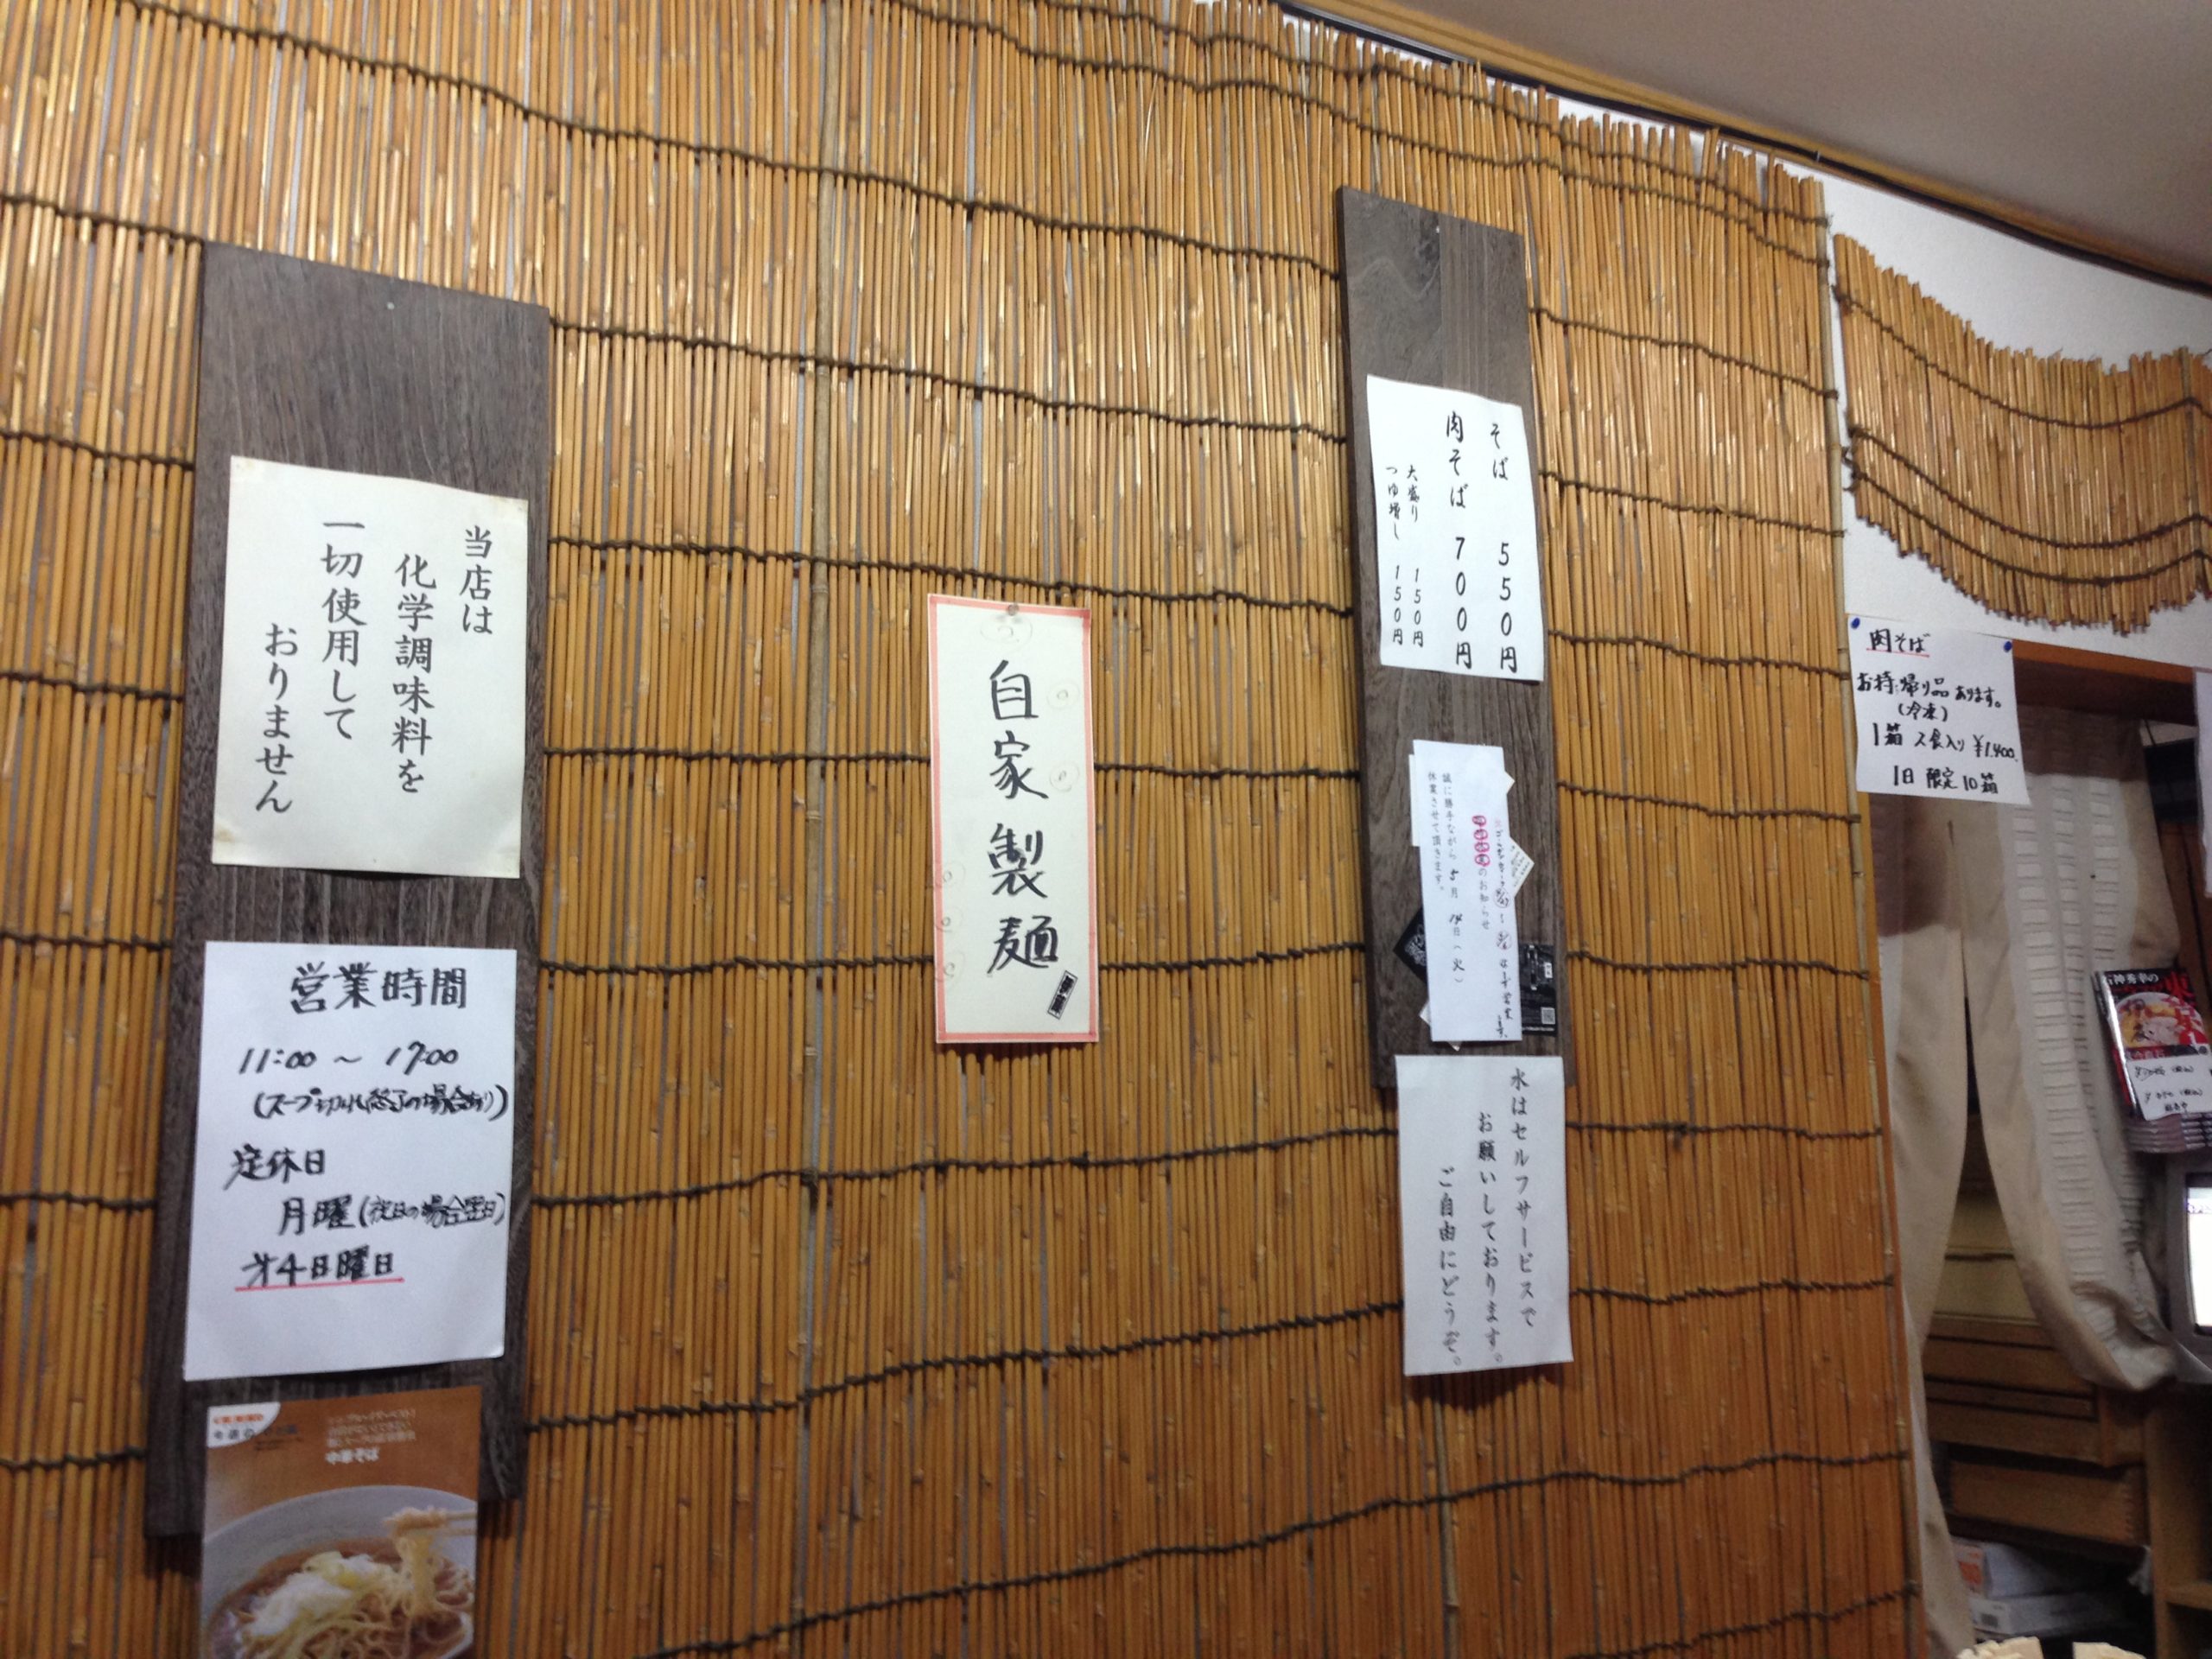 当店は
化学調味料を
一切使用して
おりません
営業時間
11:00 ～ 17:00
(スープ切れ終了の場合あり)
定休日
月曜(祝日の場合翌日)
才4日曜日
中華そば
自家製麺
そば 550円
肉そば 700円
大盛り 150円
つゆ増し 150円
のお知らせ
誠に勝手ながら 5月 14日(火)
休業させて頂きます。
水はセルフサービスで
お願いしております。
ご自由にどうぞ。
肉そば
お持ち帰り品あります。
(冷凍)
1箱 2食入り ¥1,400.
1日 限定 10箱